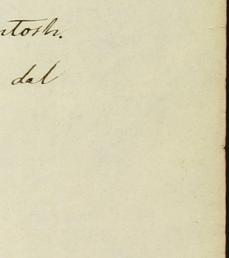 ntosh.
dal